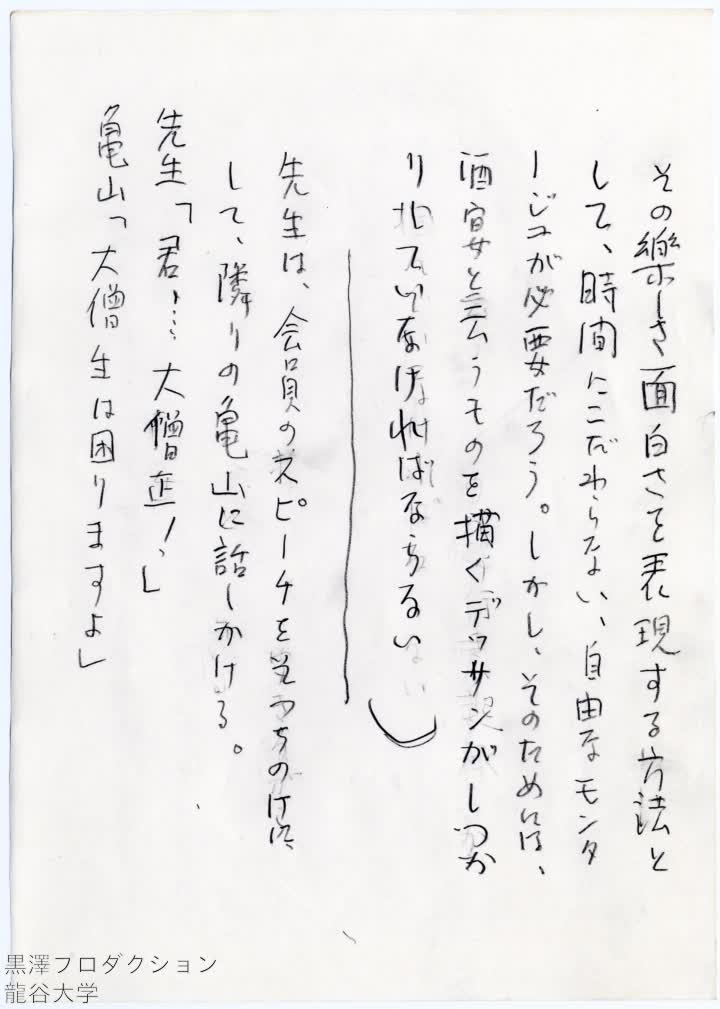 その樂しさ面白さを表現する方法と
して、時間にこだわらない、自由なモンタ
ージュが必要だろう。しかし、そのためには、
酒宴と云うものを描くデッサンがしっか
りしていなければならない)
先生は、会員のスピーチを
して、隣りの亀山に話しかける。
先生「君、…大僧正!」
亀山「大僧生は困りますよ」
黒澤プロダクション
龍谷大学